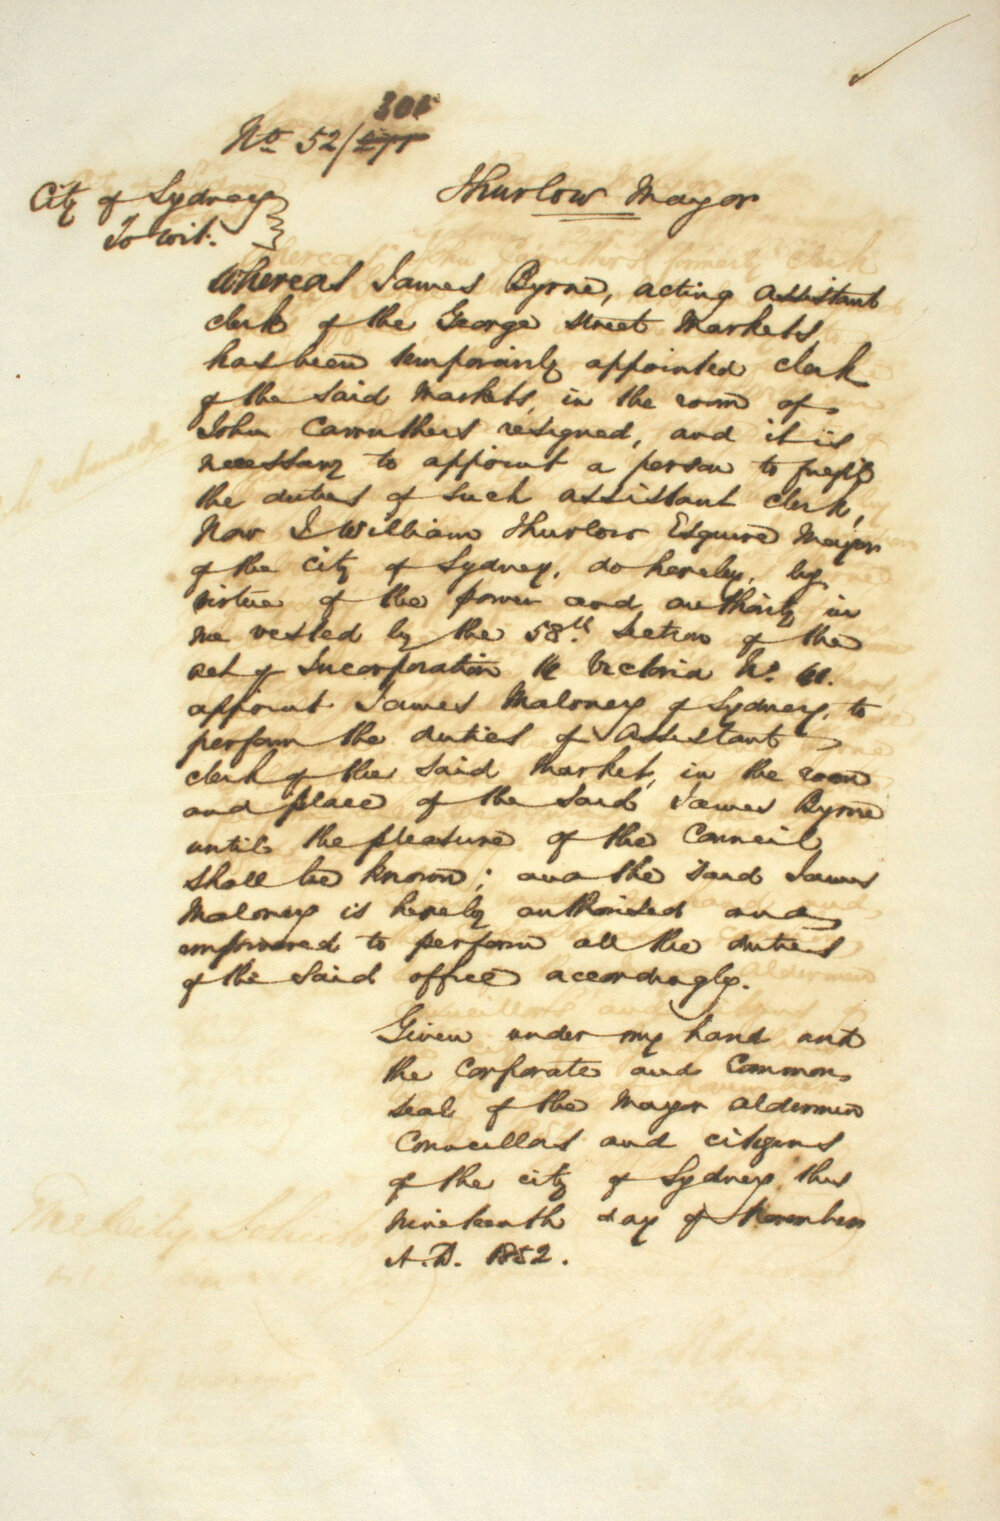 301
No 52/
City of Sydney
To wit.
Thurlow Mayor
Whereas James Byrne, acting assistant
clerk of the George Street Markets,
has been temporarily appointed clerk
of the said Markets, in the room of
John Carruthers resigned, and it is
necessary to appoint a person to fulfil
the duties of such assistant clerk,
Now I William Thurlow Esquire Mayor
of the City of Sydney, do hereby, by
virtue of the power and authority in
me vested by the 58th Section of the
act of Incorporation 14 Victoria No. 41.
appoint James Maloney of Sydney, to
perform the duties of Assistant
clerk of the said Market, in the room
and place of the said James Byrne
until the pleasure of the Council
shall be known; and the said James
Maloney is hereby authorised and
empowered to perform all the duties
of the said office accordingly.
Given under my hand and
the corporate and Common
Seal of the Mayor aldermen
Councillors and citizens
of the city of Sydney this
nineteenth day of November
A.D. 1852.